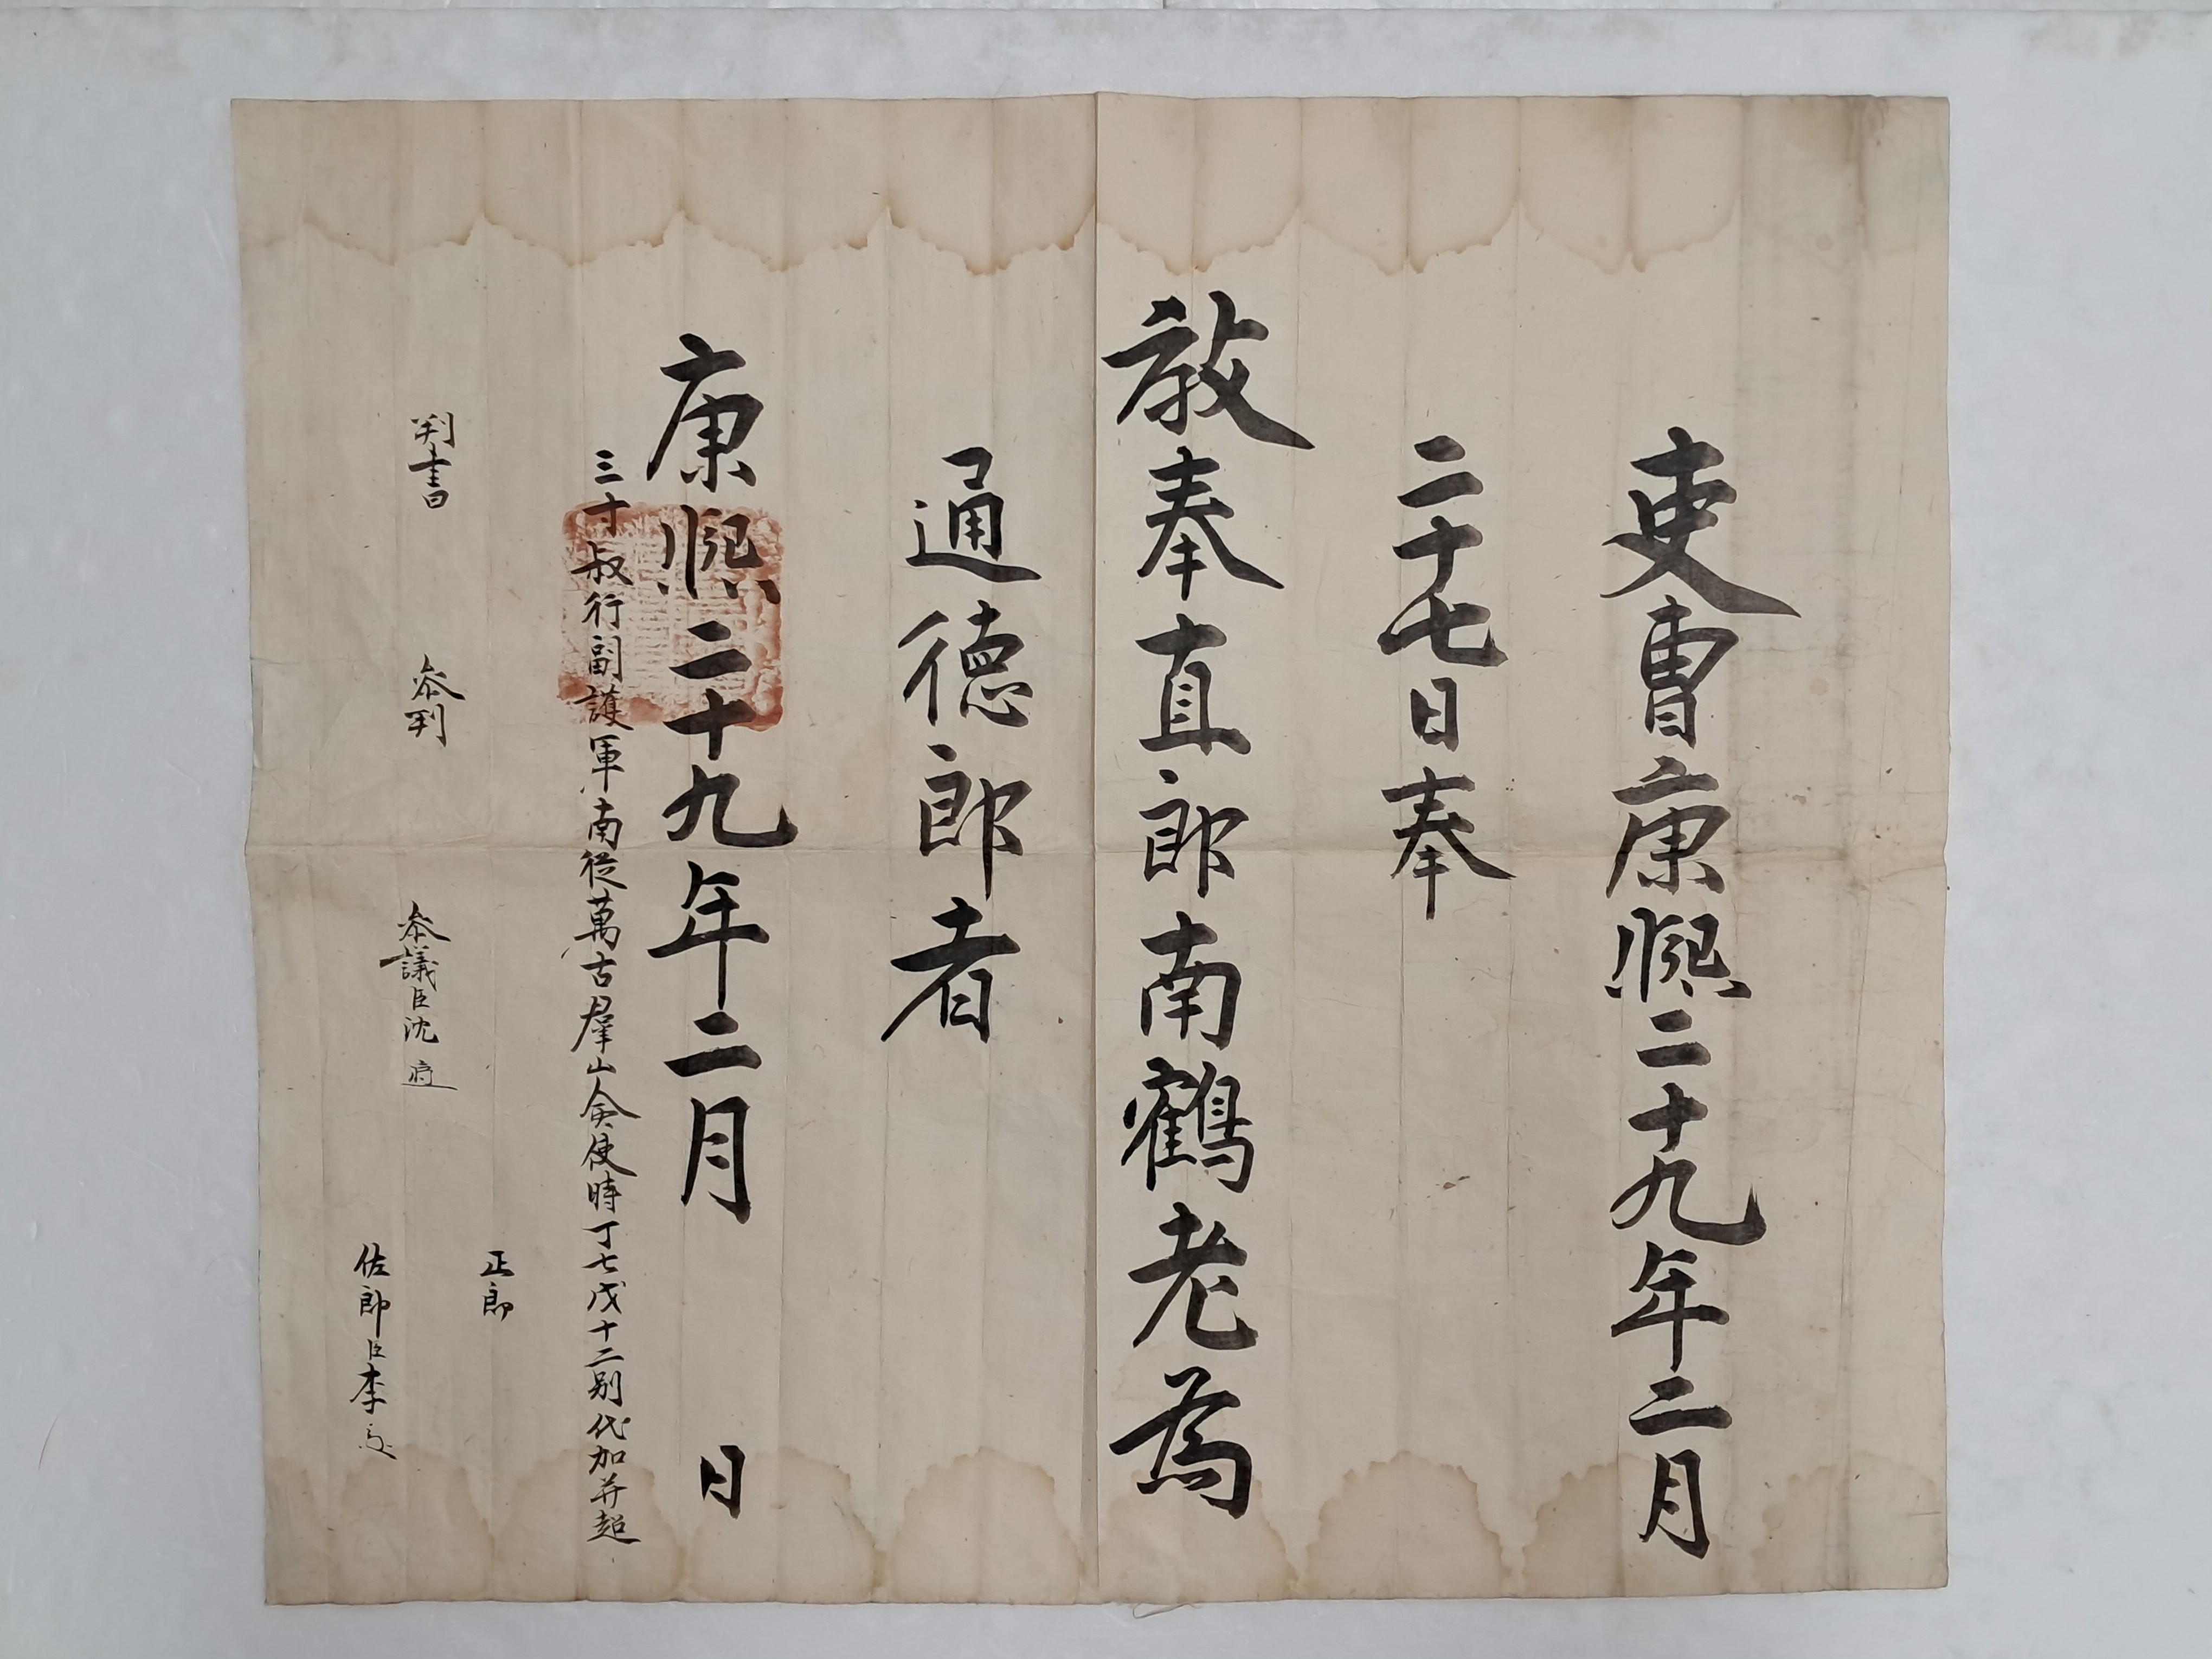 吏曹康熙二十九年二月
二十七日奉
敎奉直郎南鶴老爲
通德郎者
康熙二十九年二月 日
三寸叔行副護軍南從萬古羣山僉使時丁七戊十二別代加并超
正郎
判書 參判 參議臣沈
佐郎臣李